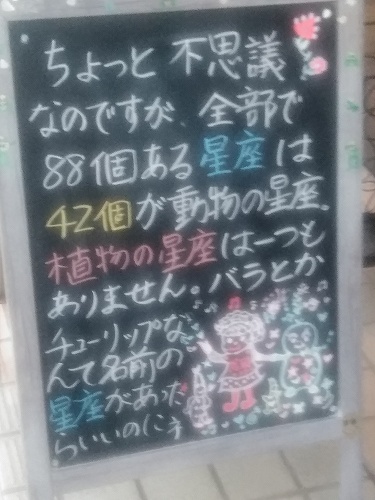 ちょっと 不思議
なのですが、全部で
88個ある星座は
42個が動物の星座。
植物の星座は一つも
ありません。バラとか
チューリップな
んて名前の
星座があった
らいいのにネ